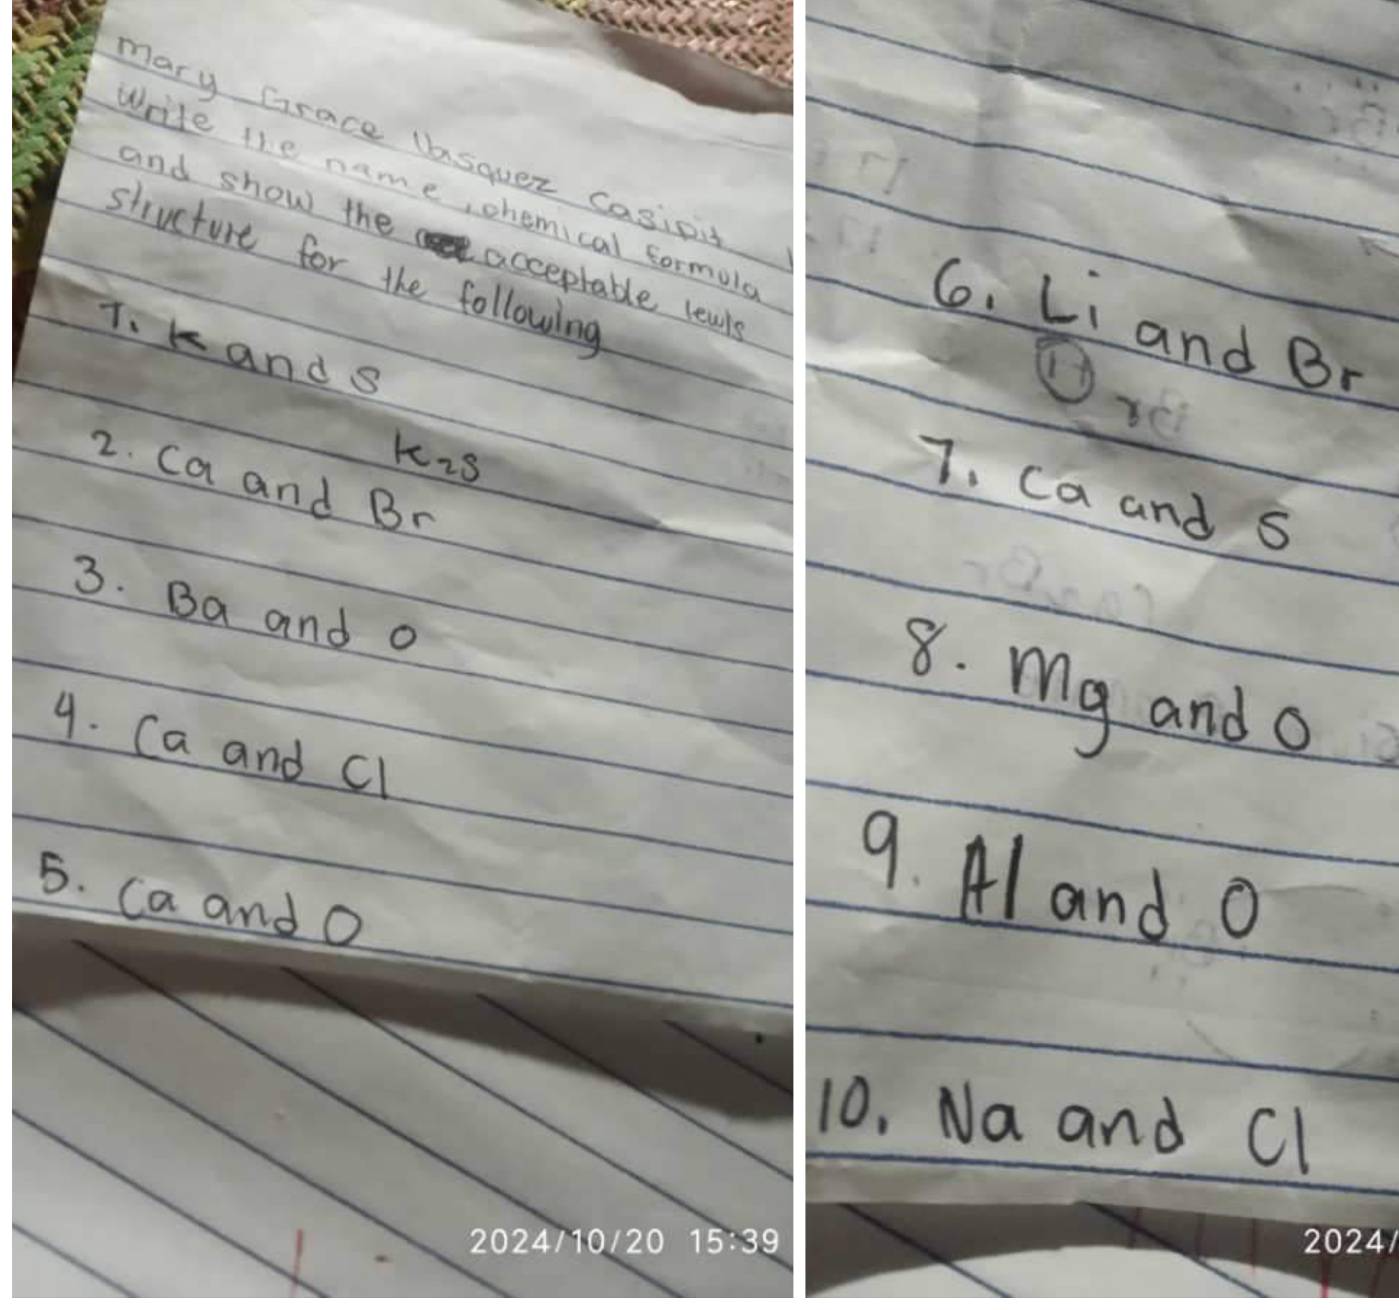 Mary Grace Vasquez Casipit
Write the name, chemical formula
and show the acceptable lewis
structure for the following
1. K and S
K2S
2. Ca and Br
3. Ba and O
4. Ca and Cl
5. Ca and O
2024/10/20 15:39
6. Li and Br
7. Ca and S
8. Mg and O
9. Al and O
10. Na and Cl
2024/